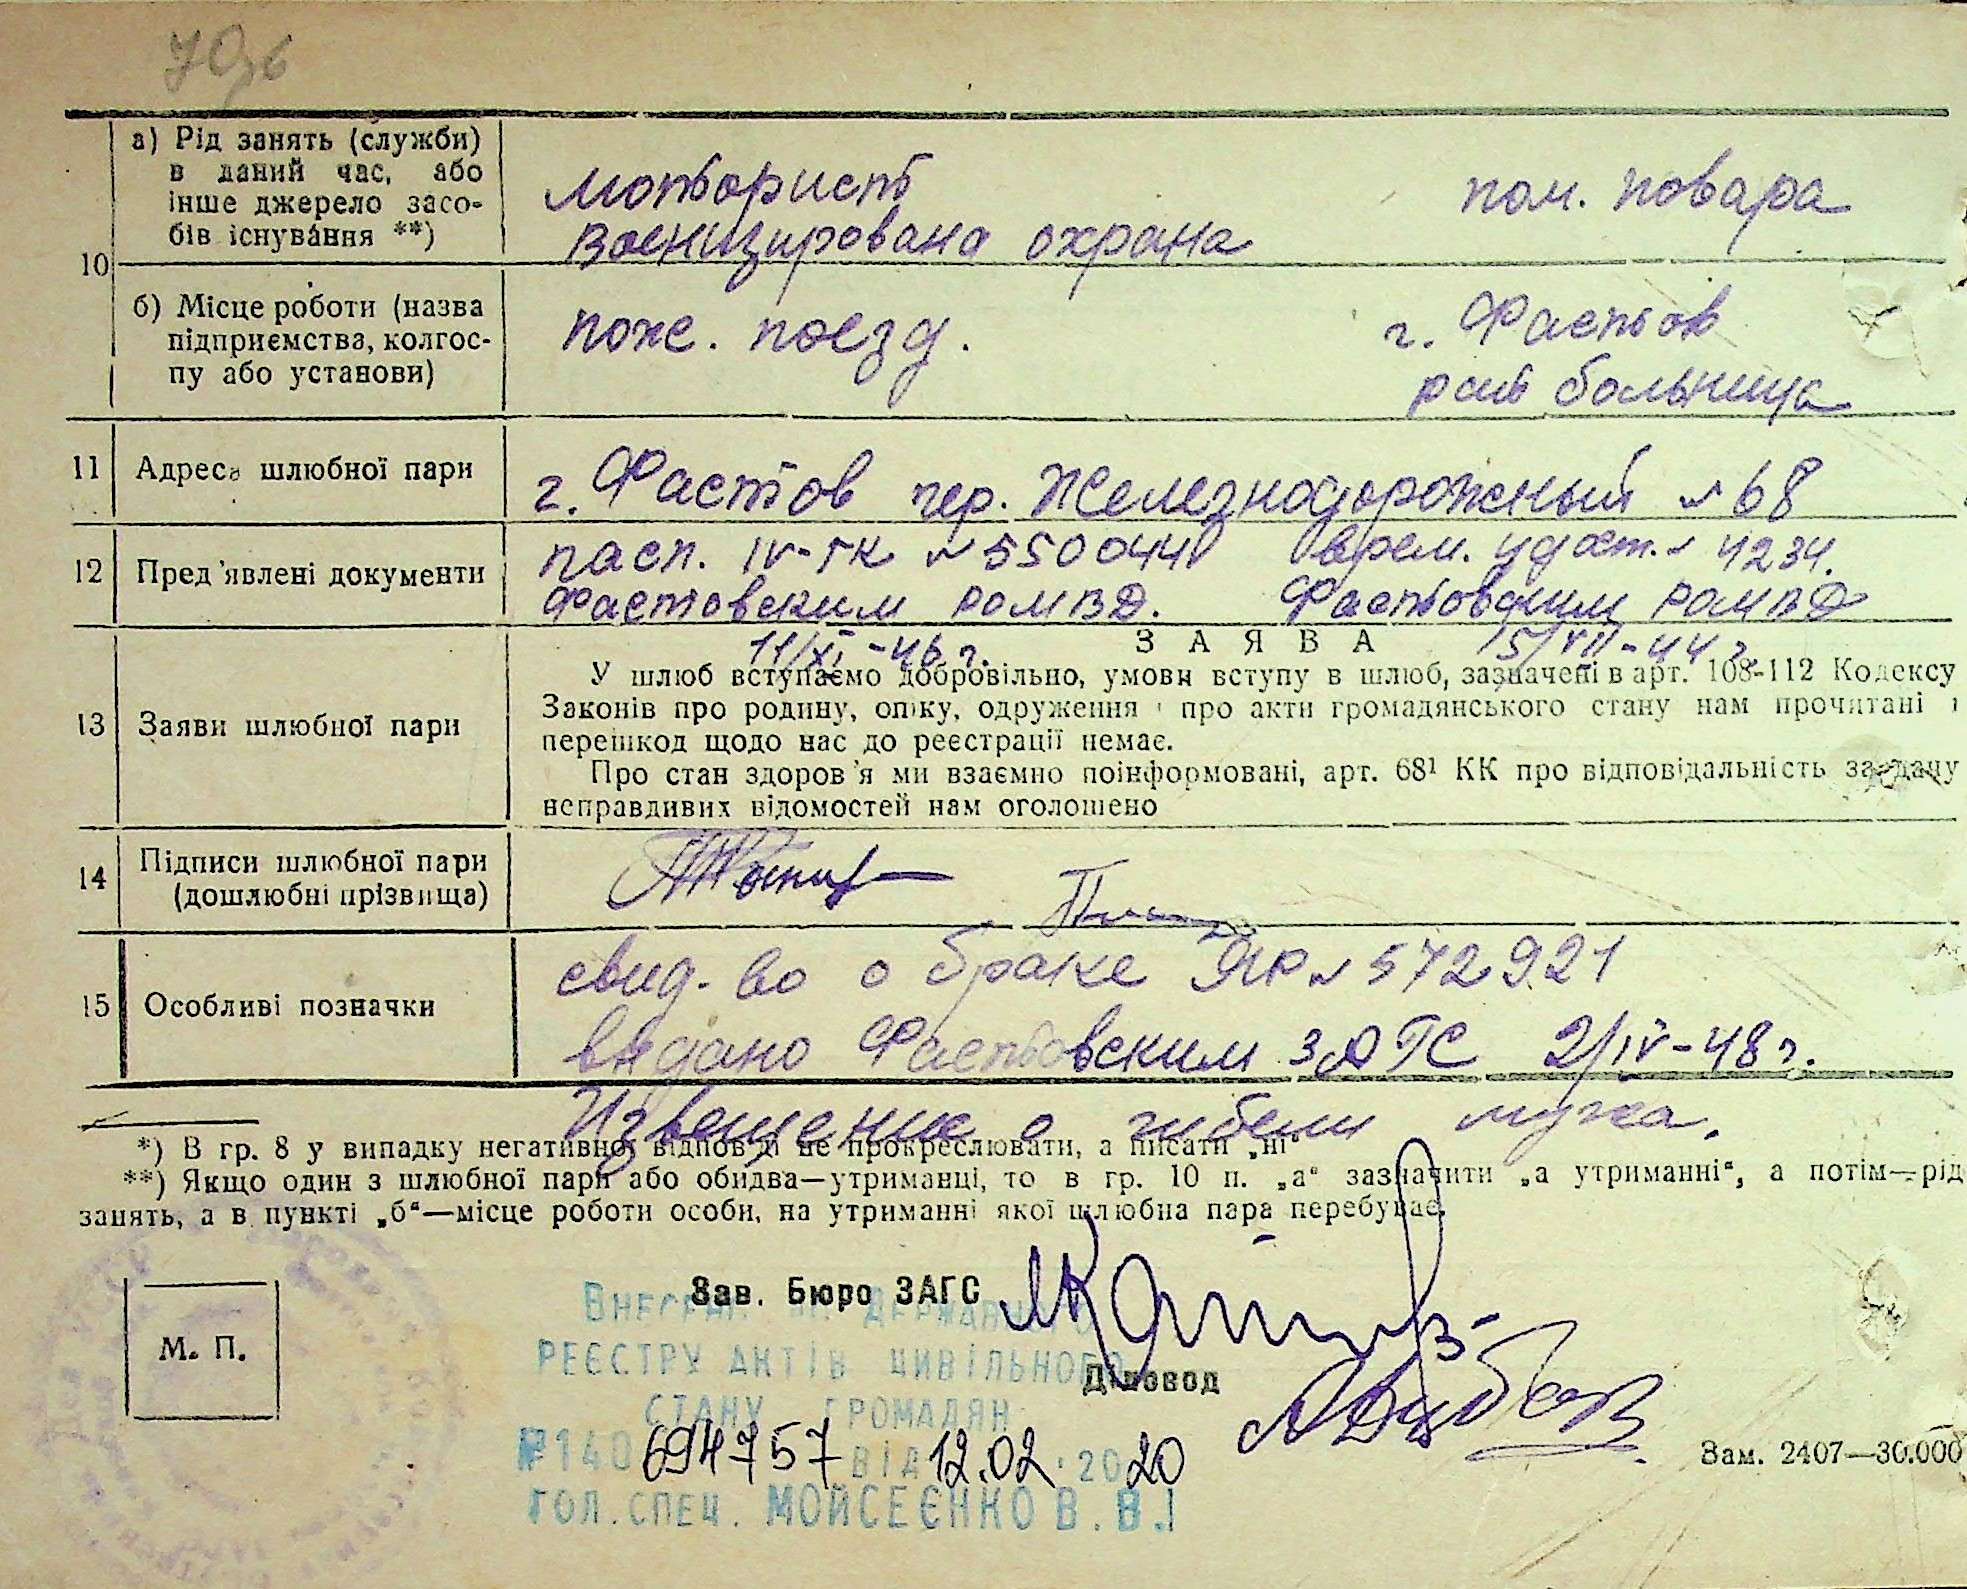 а) Рід занять (служби)
в даний час, або
інше джерело засо-
бів існування **)
мотьорист пом. повара
Военизирована охрана
10
б) Місце роботи (назва
підприємства, колгос-
пу або установи)
пож. поезд. г. Фастов
рай больница
11 Адреса шлюбної пари
г. Фастов пер. Железнодорожный № 68
12 Пред'явлені документи
пасп. IV-ГК № 550044 Врем. удост. № 4234.
Фастовским РОМВД. Фастовским РОМВД
11/XI-46 г. 15/VII-44 г.
ЗАЯВА
13 Заяви шлюбної пари
У шлюб вступаємо добровільно, умови вступу в шлюб, зазначені в арт. 108-112 Кодексу
Законів про родину, опіку, одруження і про акти громадянського стану нам прочитані і
перешкод щодо нас до реєстрації немає.
Про стан здоров'я ми взаємно поінформовані, арт. 68¹ КК про відповідальність за дачу
неправдивих відомостей нам оголошено
14 Підписи шлюбної пари
(дошлюбні прізвища)
15 Особливі позначки
свид-во о браке ЯР № 572921
видано Фастовским ЗАГС 2/IV-48 г.
Извещение о гибели мужа.
*) В гр. 8 у випадку негативної відповіді не прокреслювати, а писати „ні“
**) Якщо один з шлюбної пари або обидва—утриманці, то в гр. 10 п. „а“ зазначити „а утриманні“, а потім—рід
занять, а в пункті „б“—місце роботи особи, на утриманні якої шлюбна пара перебуває.
Зав. Бюро ЗАГС
М. П.
Діловод
ВНЕСЕНО ДО ДЕРЖАВНОГО
РЕЄСТРУ АКТІВ ЦИВІЛЬНОГО
СТАНУ ГРОМАДЯН
№140 694757 ВІД 12.02.2020
ГОЛ.СПЕЦ. МОЙСЕЄНКО В.В.
Зам. 2407—30.000